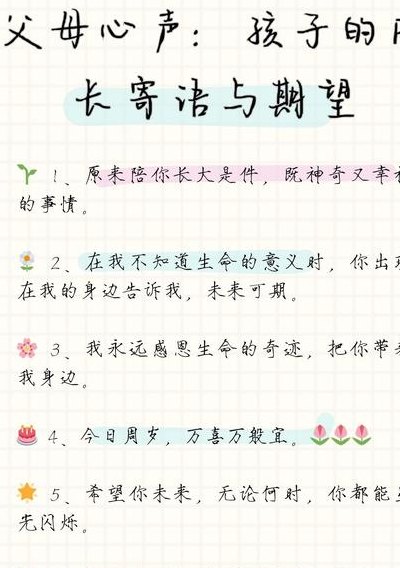 父母心声：孩子的
长寄语与期望
1、原来陪你长大是件，既神奇又幸
的事情。
2、在我不知道生命的意义时，你出
在我的身边告诉我，未来可期。
3、我永远感恩生命的奇迹，把你带
我身边。
4、今日周岁，万喜万般宜。
5、希望你未来，无论何时，你都能
先闪烁。